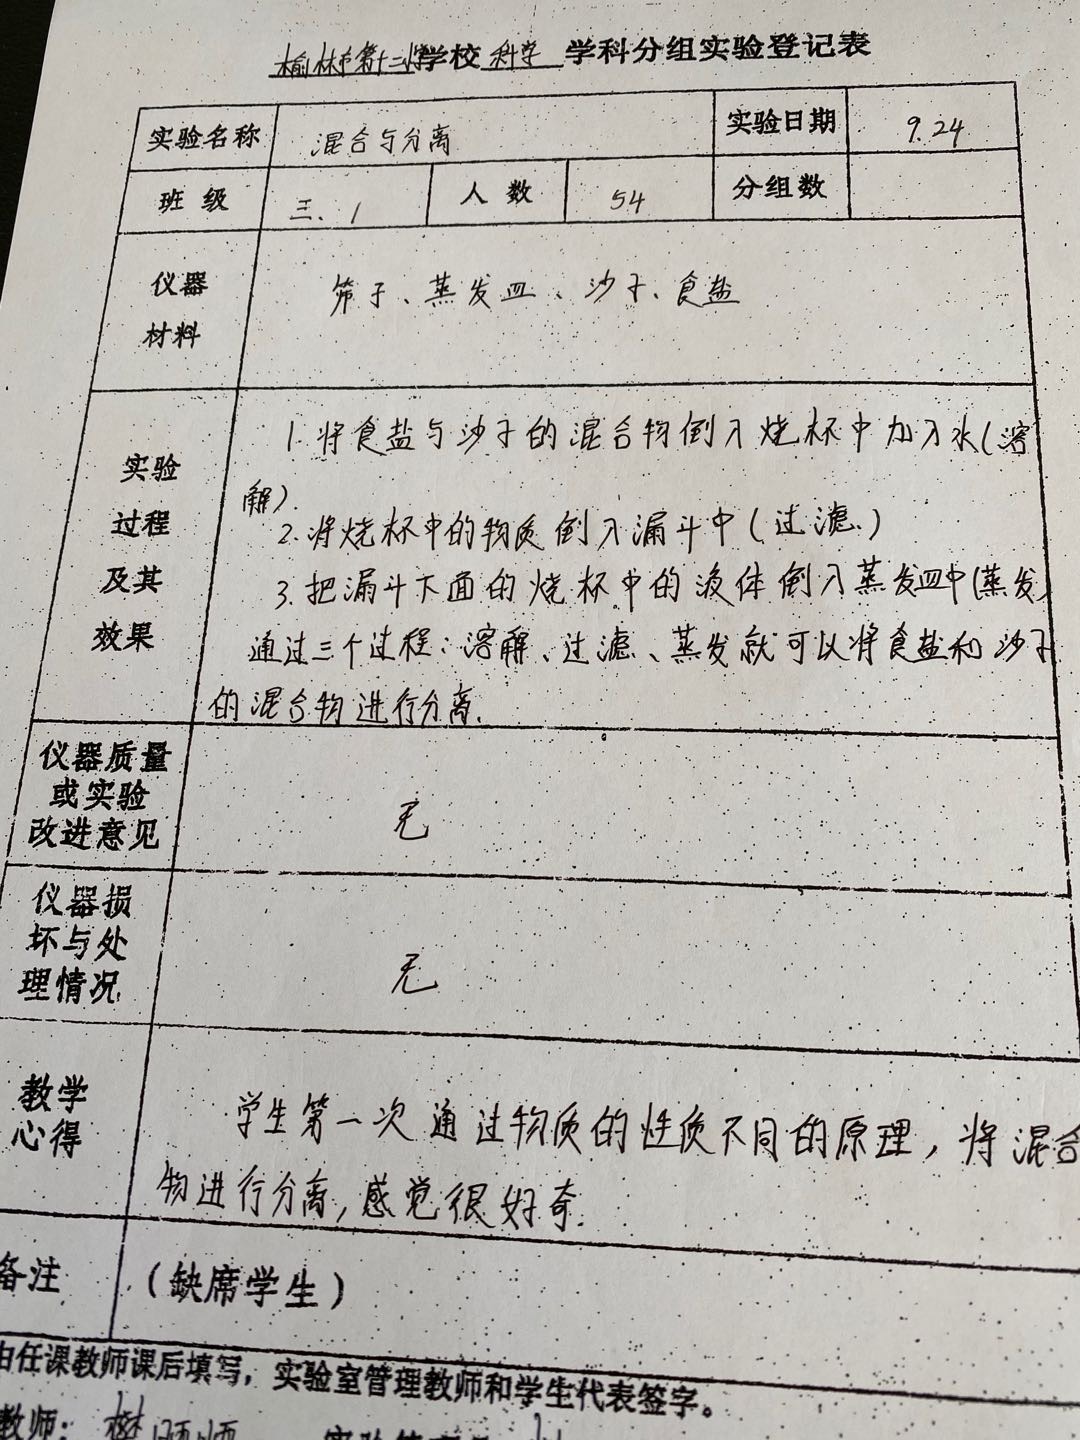 榆林市第十二小学校 科学 学科分组实验登记表
实验名称 混合与分离 实验日期 9.24
班 级 三.1 人 数 54 分组数
仪器
材料
筛子、蒸发皿、沙子、食盐
实验
过程
及其
效果
1.将食盐与沙子的混合物倒入烧杯中加入水(溶
解).
2.将烧杯中的物质倒入漏斗中(过滤.)
3.把漏斗下面的烧杯中的液体倒入蒸发皿中(蒸发)
通过三个过程:溶解、过滤、蒸发就可以将食盐和沙子
的混合物进行分离.
仪器质量
或实验
改进意见
无
仪器损
坏与处
理情况
无
教学
心得
学生第一次通过物质的性质不同的原理,将混合
物进行分离,感觉很好奇.
备注 (缺席学生)
由任课教师课后填写,实验室管理教师和学生代表签字。
教师: